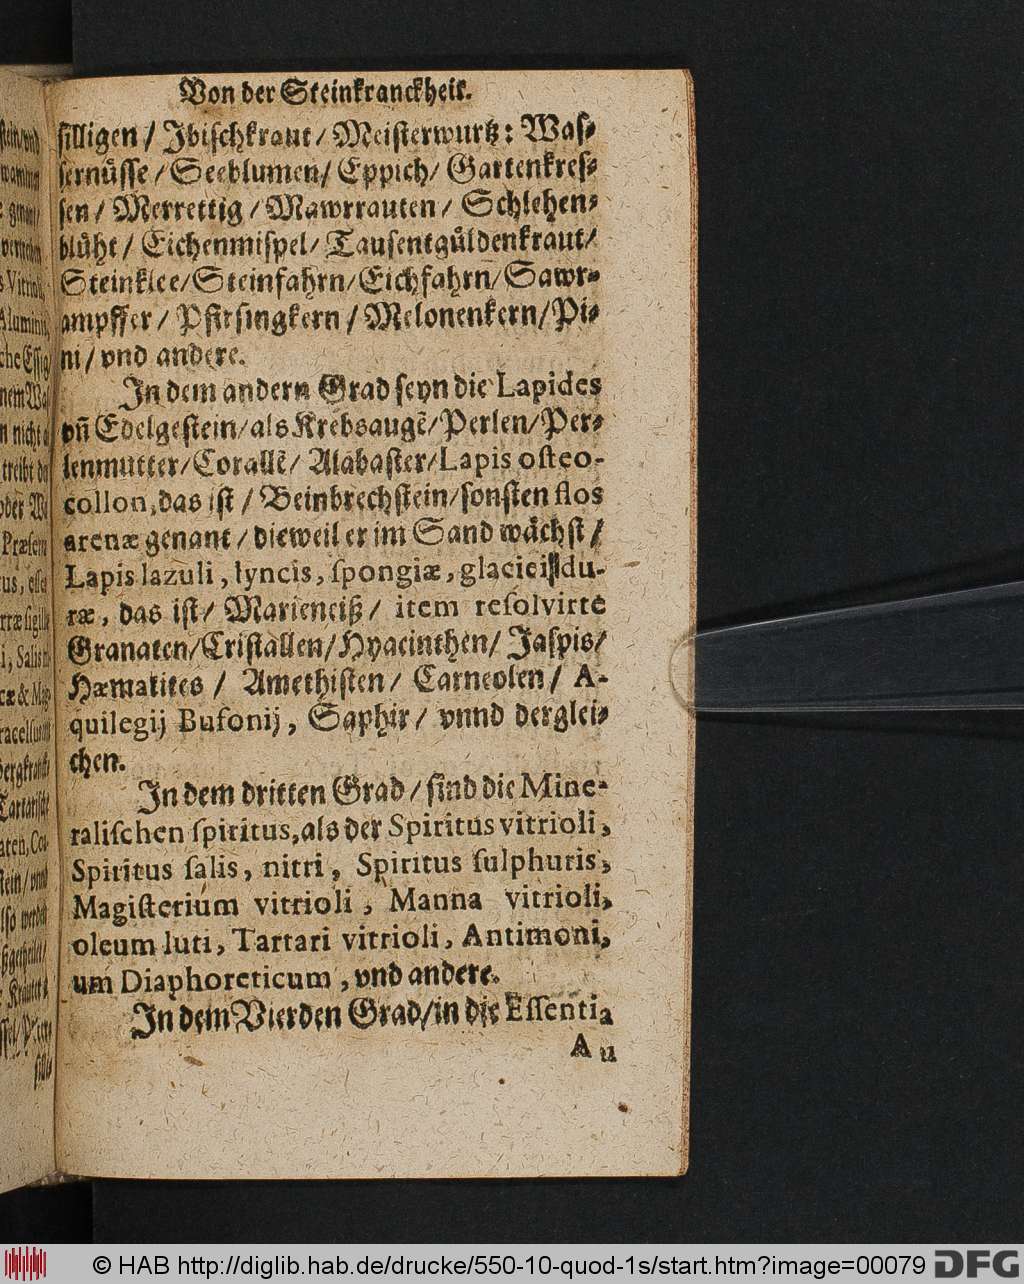 Von der Steinkranckheit.
silligen / Ibischkraut / Meisterwurtz: Was-
sernüsse / Seeblumen / Eppich / Gartenkres-
sen / Merrettig / Mawrrauten / Schlehen-
blüht / Eichenmispel / Tausentgüldenkraut /
Steinklee / Steinfahrn / Eichfahrn / Sawr-
ampffer / Pfirsingkern / Melonenkern / Pi-
ni / vnd andere.
In dem andern Grad seyn die Lapides
vn̄ Edelgestein / als Krebsaugẽ / Perlen / Per-
lenmutter / Corallẽ / Alabaster / Lapis osteo-
collon, das ist / Beinbrechstein / sonsten flos
arenæ genant / dieweil er im Sand wächst /
Lapis lazuli, lyncis, spongiæ, glaciei du-
ræ, das ist / Marieneiß / item resolvirte
Granaten / Cristallen / Hyacinthen / Jaspis /
Hæmatites / Amethisten / Carneolen / A-
quilegij Bufonij, Saphir / vnnd derglei-
chen.
In dem dritten Grad / sind die Mine-
ralischen spiritus, als der Spiritus vitrioli,
Spiritus salis, nitri, Spiritus sulphuris,
Magisterium vitrioli, Manna vitrioli,
oleum luti, Tartari vitrioli, Antimoni,
um Diaphoreticum, vnd andere.
In dem Vierden Grad / in die Essentia
Au
© HAB http://diglib.hab.de/drucke/550-10-quod-1s/start.htm?image=00079
DFG